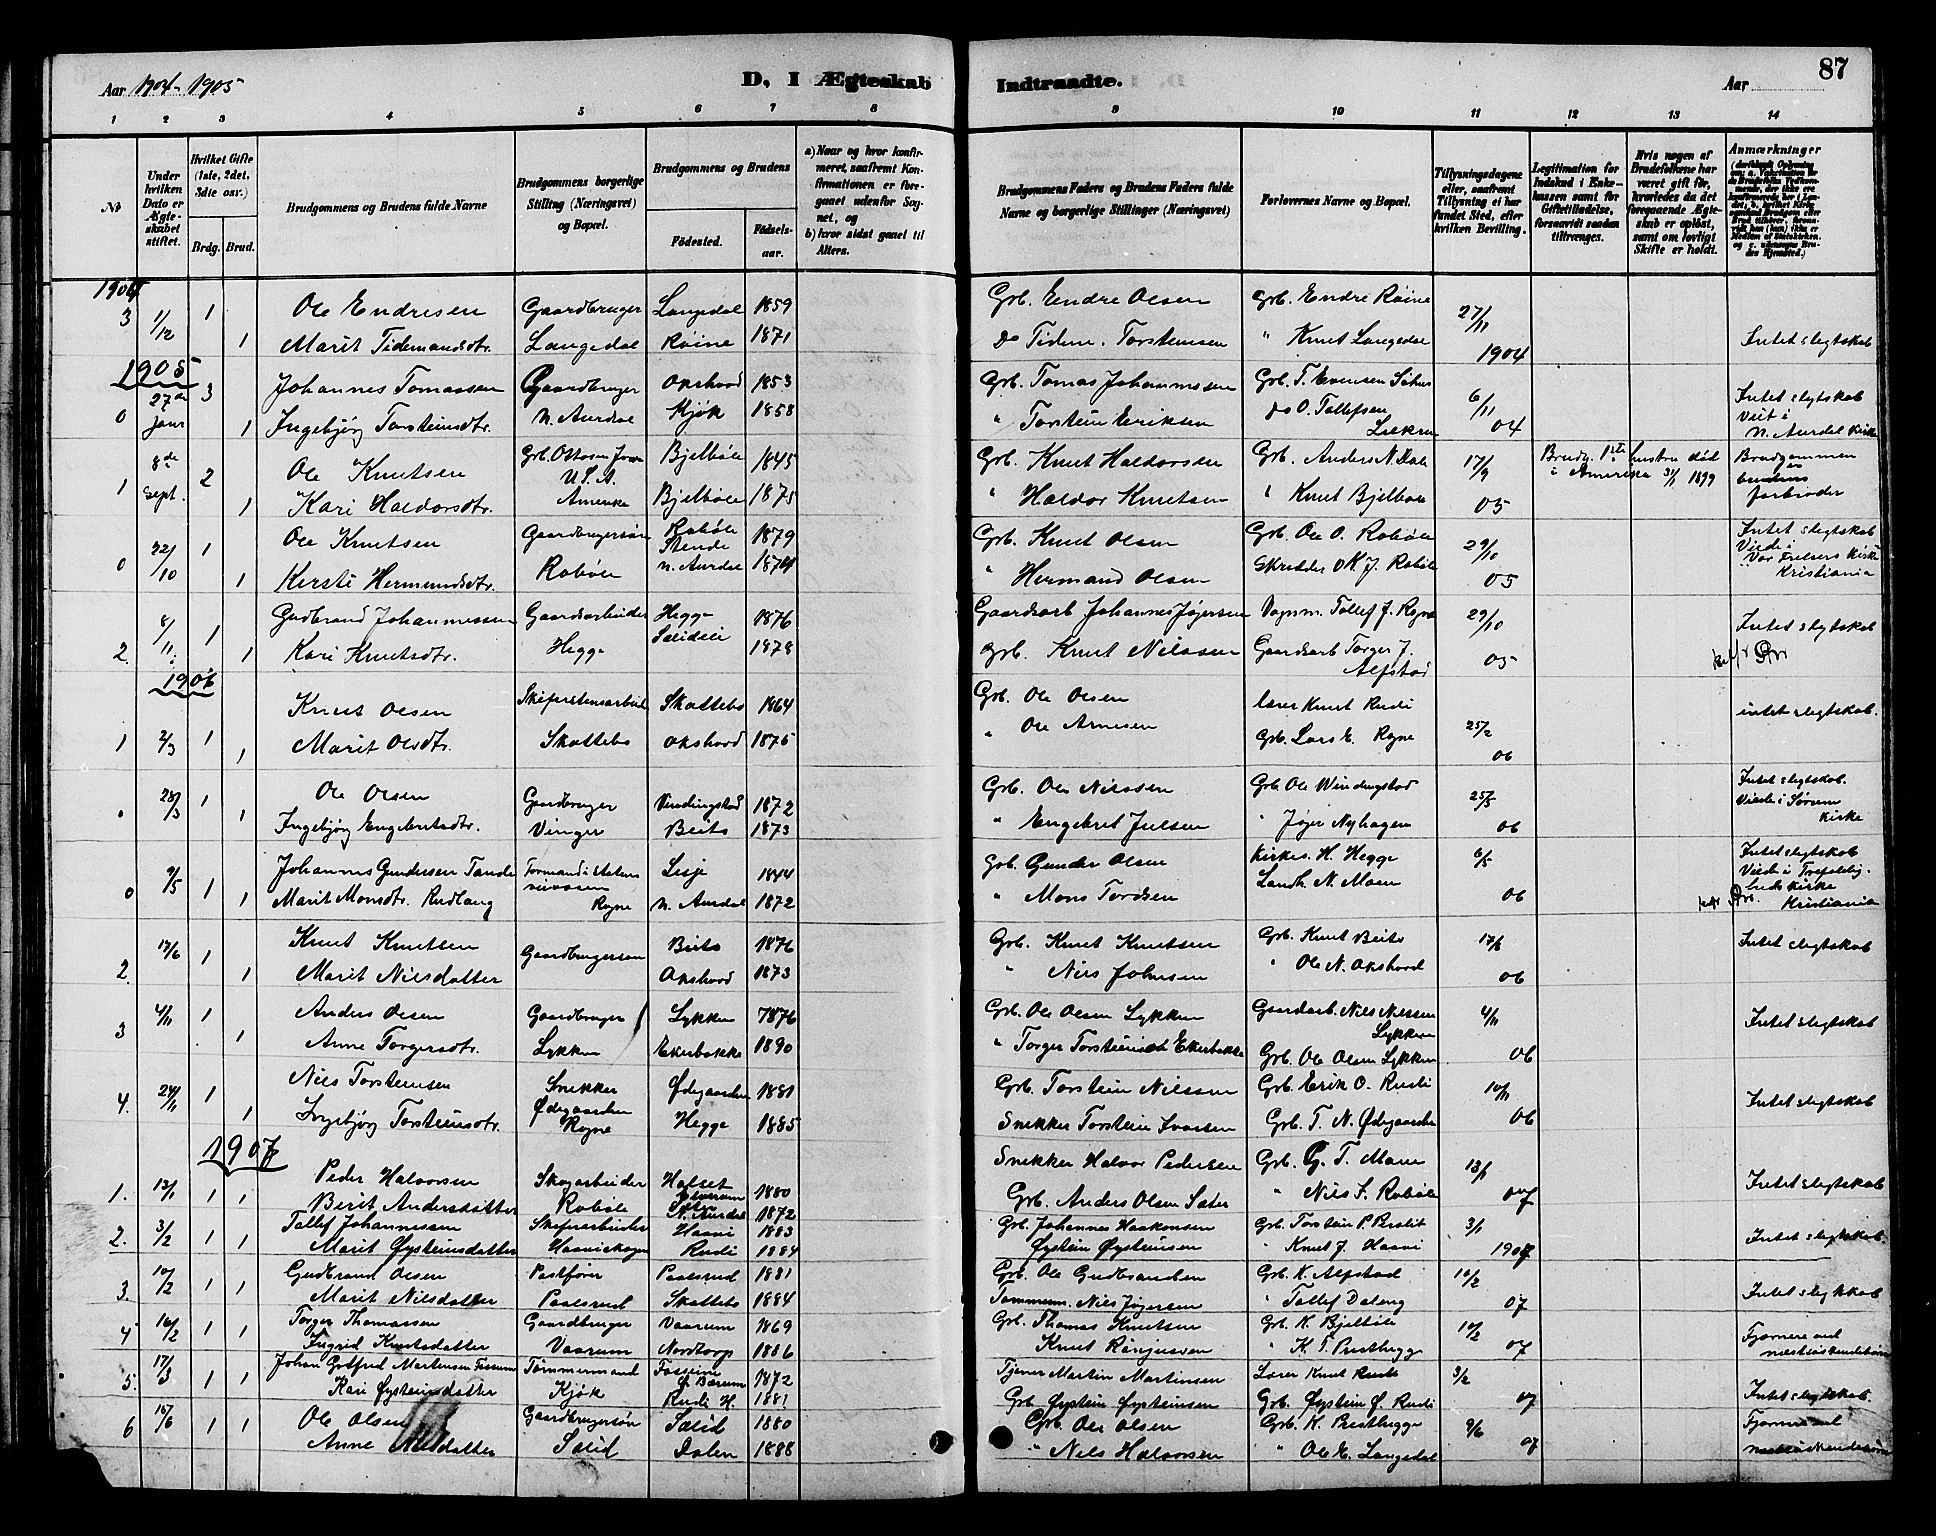 Aar 1904-1905
D, I Ægteskab
Indtraadte.
Aar
87
1 2 3 4 5 6 7 8 9 10 11 12 13 14
No
Under hvilken Dato er Ægteskabet stiftet.
Hvilket Gifte (1ste, 2det, 3die osv.)
Brdg. Brud.
Brudgommens og Brudens fulde Navne
Brudgommens borgerlige Stilling (Næringsvei) og Bopæl.
Brudgommens og Brudens
Fødested.
Fødselsaar.
a) Naar og hvor konfirmeret, saafremt Konfirmationen er foregaaet udenfor Sognet, og
b) hvor sidst gaaet til Alters.
Brudgommens Faders og Brudens Faders fulde Navne og borgerlige Stillinger (Næringsvei)
Forlovernes Navne og Bopæl.
Tillysningsdagene eller, saafremt Tillysning ei har fundet Sted, efter hvilken Bevilling.
Legitimation for Indskud i Enkekassen samt for Giftetilladelse, forsaavidt saadan tiltrænges.
Hvis nogen af Brudefolkene har været gift før, hvorledes da det foregaaende Ægteskab er opløst, samt om lovligt Skifte er holdt.
Anmærkninger
1904
3 1/12 1 Ole Endresen Gaardbruger Langedal 1859 Grb. Endre Olsen Grb. Endre Røine 27/11
1 Marit Tidemandsdtr. Langedal Røine 1871 Do Tidem. Torsteinsen " Knut Langedal 1904 Intet slegtskab
1905
0 27de Janr 3 Johannes Tomassen Gaardbruger Okshovd 1853 Grb. Tomas Johannessen Grb. T. Evensen 6/11 Intet slegtskab
1 Ingebjørg Torsteinsdtr. N. Aurdal Kjøk 1858 " Torstein Eriksen do O. Tollefsen 04 Viet i N. Aurdal Kirke
1 8de Sept. 2 Ole Knutsen Grb. U.S.A. Bjelbøle 1845 Grb. Knut Haldorsen Grb. Anders N. Dale 17/9 Brudg. 1ste hustru død i Amerika 31/1 1899 Brudgommen er brudens farbroder
1 Kari Haldorsdtr. Amerika Bjelbøle 1875 " Haldor Knutsen " Knut Bjelbøle 05
0 22/10 1 Ole Knutsen Gaardbrugersøn Robøle 1879 Grb. Knut Olsen Grb. Ole O. Robøle 29/10 Intet slegtskab
1 Kersti Hermundsdtr. Robøle Stende N. Aurdal 1874 " Hermand Olsen Skredder O K J. Robøle 05 Viede i Vor Frelsers Kirke Kristiania
2. 8/11. 1 Gudbrand Johannessen Gaardsarbeider Hegge 1876 Gaardsarb Johannes Jøjersen Tollef J. Rogne 29/10 Intet slegtskab
1 Kari Knutsdtr. Hegge 1878 Grb. Knut Nilssen Gaardsarb Torger J. Alfstad 05
1906
1 2/3 1 Knut Olsen Skiferstensarbeid Skattebo 1864 Grb. Ole Olsen lærer Knut Rudi 25/2 intet slegtskab.
1 Marit Olsdtr. Skattebo Okshovd 1875 " Ole Arnesen Grb. Lars E. Rogne 06
0 28/3 1 Ole Olsen Gaardbruger Vindingstad 1872 Grb. Ole Nilssen Grb Ole Windingstad 25/3 Intet slegtskab.
1 Ingebjørg Engebretsdtr. Vinger Beito 1873 " Engebret Julsen " Jøjer Nyhagen 06 Viede i Sørum Kirke
0 9/5 1 Johannes Gundersen Tande Lesje 1844 Grb. Gunder Olsen Kirkes. H. Hegge 6/5 Intet slegtskab
1 Marit Monsdtr. Rudlang Rogne N. Aurdal 1872 " Mons Tordsen Landh. N. Moen 06 Viede i Trefoldighedskirke Kristiania
2. 17/6 1 Knut Knutsen Gaardbrugersøn Beito 1876 Grb. Knut Knutsen Grb. Knut Beito 17/6 Intet slegtskab
1 Marit Nilsdatter Okshovd 1873 " Nils Johnsen " Ole N. Okshovd 06
3 4/11 1 Anders Olsen Gaardbruger Lykken 1876 Grb. Ole Olsen Lykken Gaardarb. Nils Nilssen Lykken 4/11 Intet slegtskab
1 Anne Torgersdtr. Lykken Ekerbakke 1890 " Torger Torsteinsen Ekerbakke Grb. Ole Olsen Lykken 06
4. 24/11 1 Nils Torsteinsen Snekker Ødegaarden 1881 Grb. Torstein Nilssen Grb. Erik O. Rudi 10/11 Intet slegtskab
1 Ingebjørg Torsteinsdtr. Ødegaarden Rogne Hegge 1885 Snekker Torstein Ivarsen Grb. T. N. Ødegaarden 06
1907
1. 13/1 1 1 Peder Halvorsen Skogarbeider Halset Elverum 1880 Snekker Halvor Pedersen Grb. G. T. Moen 13/1 Intet slegtskab
Berit Andersdatter Robøle N. Aurdal 1872 Grb. Anders Olsen Sæter " Nils S. Robøle 07
2. 3/2 1 1 Tollef Johannessen Skiferarbeider Haavi 1883 Grb. Johannes Haakonsen Grb. Torstein P. 3/1 Intet slegtskab.
Marit Øysteinsdatter Rudi 1884 Øystein Øysteinsen " Knut J. Haavi 1907
3. 10/2 1 1 Gudbrand Olsen Postfører Paalsrud 1881 Grb. Ole Gudbrandsen Grb. K. Alfstad 10/2 Intet slegtskab
Marit Nilsdatter Paalsrud Skattebo 1884 Tømmerm. Nils Jøjersen " Tollef Daleng 07
4 16/2 1 1 Torger Thomassen Gaardbruger Vaarum 1869 Grb. Thomas Knutsen Grb. K. Bjelbøle 10/2 Fjernere end
Ingrid Knutsdatter Vaarum Nordtorp 1886 Knut " K. T. Prestbygge 07 næstsøskendebørn
5. 17/3 1 1 Johan Gotfred Martinsen Tømmermand Bærum 1872 Tjener Martin Martinsen Lærer Knut Rudi 3/2
Kari Øysteinsdatter Kjøk Rudi H. 1881 Grb Øystein Øysteinsen Grb. Øystein Ø. Rudi 07 Intet slegtskab.
6 16/6 1 1 Ole Olsen Gaardbrugersøn Sælid 1880 Grb. Ole Olsen Grb. K. Prestbygge 9/6 Fjernere end
Anne Nilsdatter Sælid Dalen 1888 " Nils Halvorsen " Ole E. Langedal 07 næstsøskendebørn